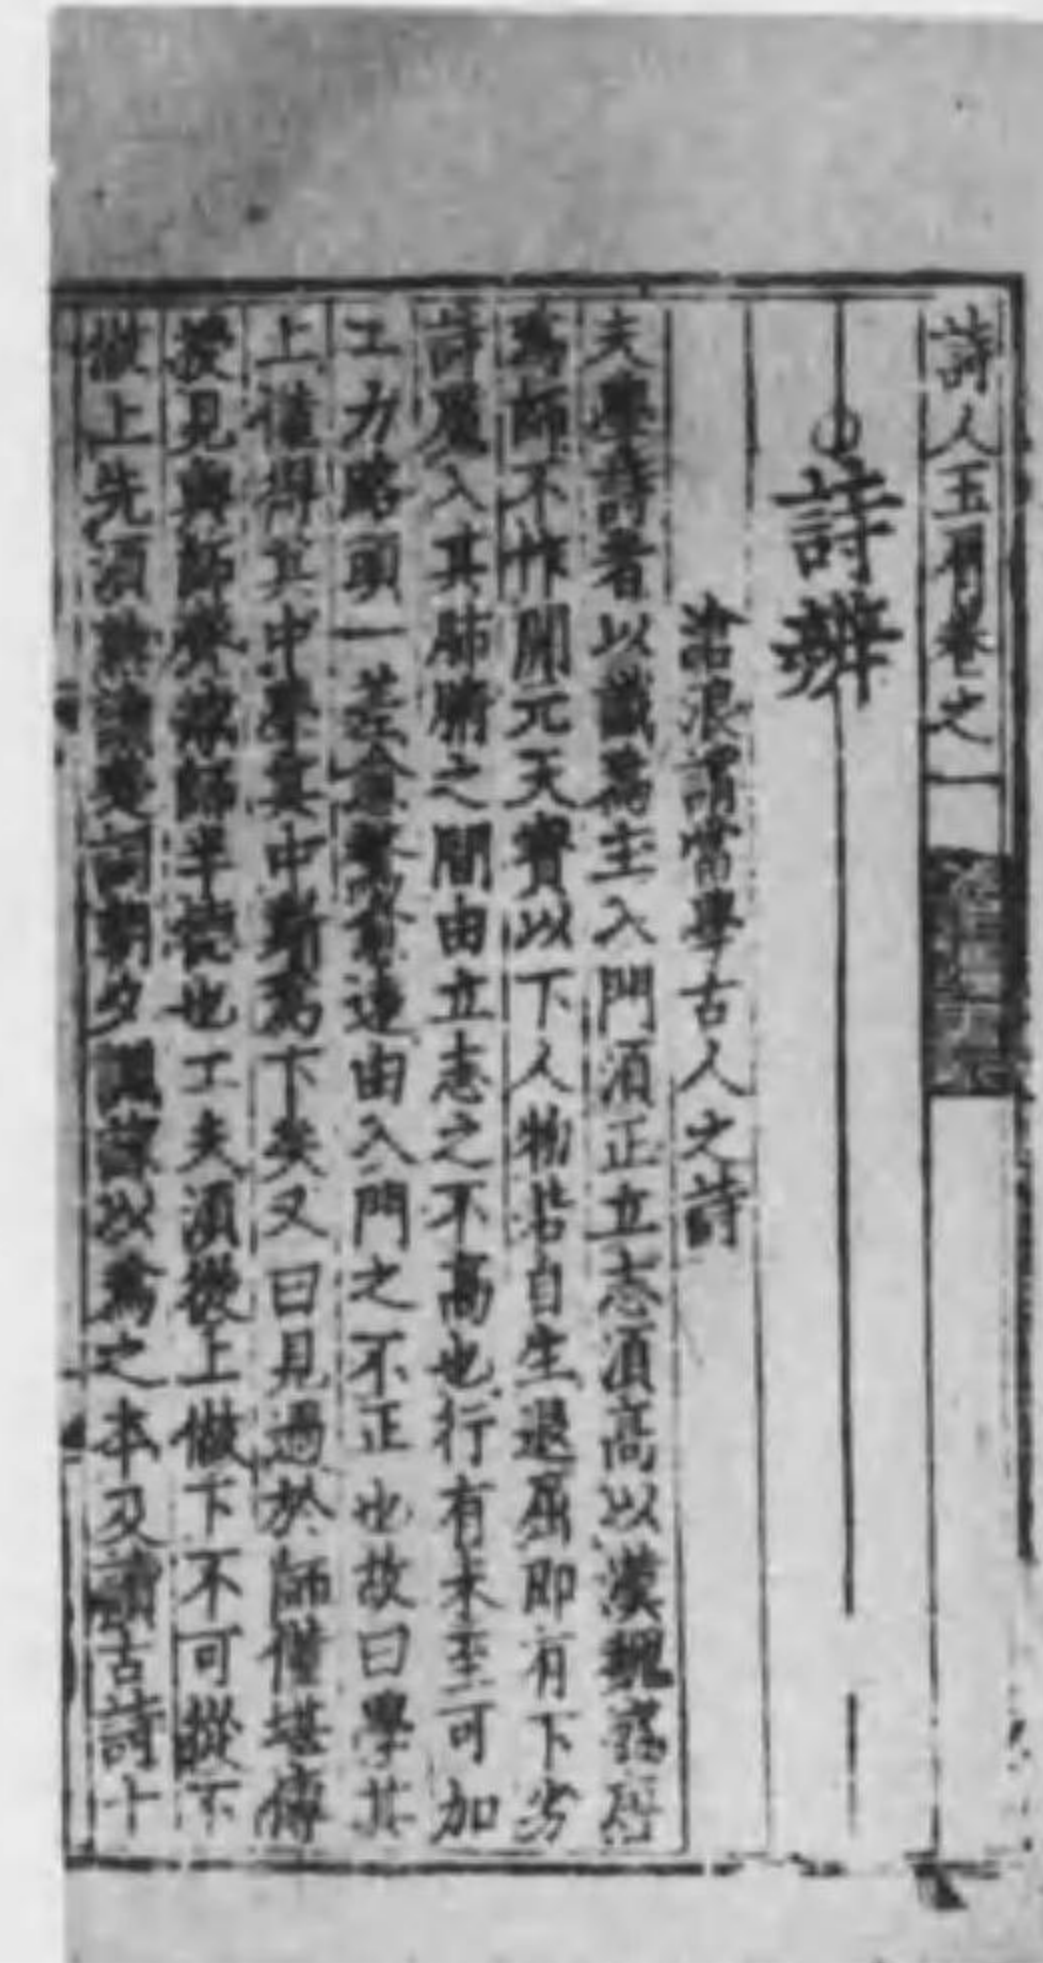 詩人玉屑卷之一
詩辨
滄浪謂當學古人之詩
夫學詩者以識爲主入門須正立志須高以漢魏晉盛
爲師不作開元天寶以下人物若自生退屈即有下劣
詩魔入其肺腑之間由立志之不高也行有未至可加
工力路頭一差愈騖愈遠由入門之不正也故曰學其
上僅得其中學其中斯爲下矣又曰見過於師僅堪傳
授見與師齊減師半德也工夫須從上做下不可從下
做上先須熟讀楚詞朝夕諷詠以爲之本及讀古詩十